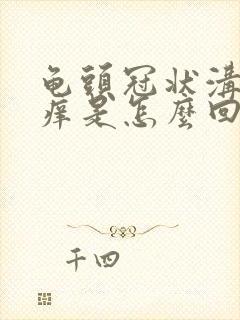 龟頭冠状溝
痒是怎麼回
千四